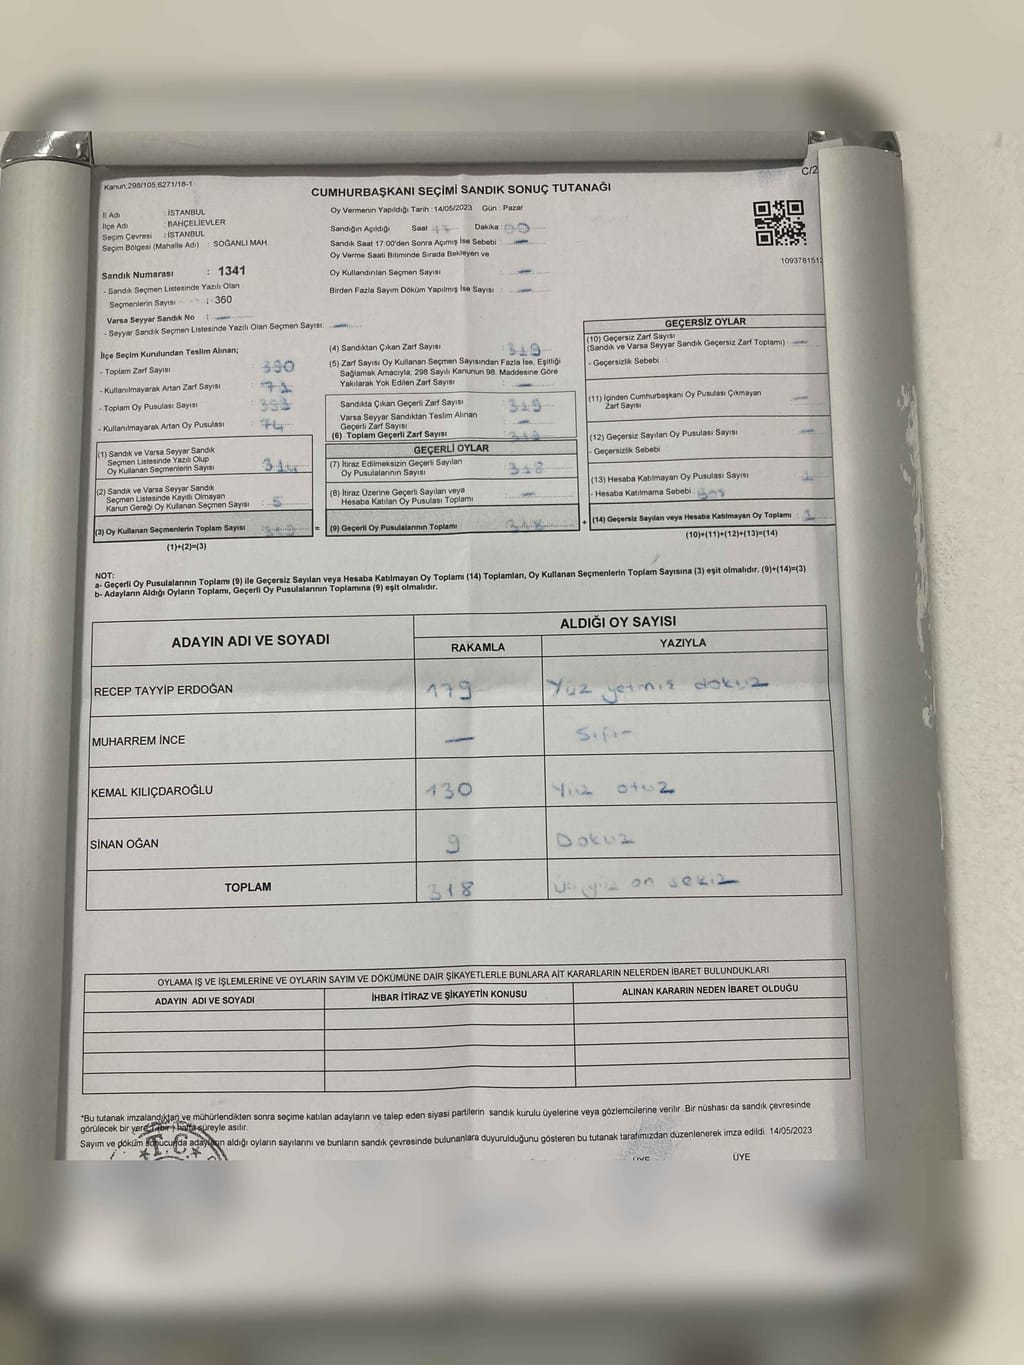 Kanun;298/105,6271/18-1
C/2
CUMHURBAŞKANI SEÇİMİ SANDIK SONUÇ TUTANAĞI
İl Adı : İSTANBUL
İlçe Adı : BAHÇELİEVLER
Seçim Çevresi : İSTANBUL
Seçim Bölgesi (Mahalle Adı) : SOĞANLI MAH.
Sandık Numarası : 1341
- Sandık Seçmen Listesinde Yazılı Olan
Seçmenlerin Sayısı : 360
Varsa Seyyar Sandık No : —
- Seyyar Sandık Seçmen Listesinde Yazılı Olan Seçmen Sayısı: —
Oy Vermenin Yapıldığı Tarih : 14/05/2023 Gün : Pazar
Sandığın Açıldığı Saat 17 Dakika : 00
Sandık Saat 17:00'den Sonra Açımış İse Sebebi : —
Oy Verme Saati Bitiminde Sırada Bekleyen ve
Oy Kullandırılan Seçmen Sayısı : —
Birden Fazla Sayım Döküm Yapılmış İse Sayısı : —
1093781512
İlçe Seçim Kurulundan Teslim Alınan;
- Toplam Zarf Sayısı : 390
- Kullanılmayarak Artan Zarf Sayısı : 71
- Toplam Oy Pusulası Sayısı : 393
- Kullanılmayarak Artan Oy Pusulası : 74
(1) Sandık ve Varsa Seyyar Sandık
Seçmen Listesinde Yazılı Olup
Oy Kullanan Seçmenlerin Sayısı : 314
(2) Sandık ve Varsa Seyyar Sandık
Seçmen Listesinde Kayıtlı Olmayan
Kanun Gereği Oy Kullanan Seçmen Sayısı : 5
(3) Oy Kullanan Seçmenlerin Toplam Sayısı : 319
(1)+(2)=(3)
(4) Sandıktan Çıkan Zarf Sayısı : 319
(5) Zarf Sayısı Oy Kullanan Seçmen Sayısından Fazla İse, Eşitliği
Sağlamak Amacıyla, 298 Sayılı Kanunun 98. Maddesine Göre
Yakılarak Yok Edilen Zarf Sayısı : —
Sandıkta Çıkan Geçerli Zarf Sayısı : 319
Varsa Seyyar Sandıktan Teslim Alınan
Geçerli Zarf Sayısı : —
(6) Toplam Geçerli Zarf Sayısı : 319
GEÇERLİ OYLAR
(7) İtiraz Edilmeksizin Geçerli Sayılan
Oy Pusulalarının Sayısı : 318
(8) İtiraz Üzerine Geçerli Sayılan veya
Hesaba Katılan Oy Pusulası Toplamı : —
= (9) Geçerli Oy Pusulalarının Toplamı : 318
GEÇERSİZ OYLAR
(10) Geçersiz Zarf Sayısı
(Sandık ve Varsa Seyyar Sandık Geçersiz Zarf Toplamı) : —
- Geçersizlik Sebebi :
(11) İçinden Cumhurbaşkanı Oy Pusulası Çıkmayan
Zarf Sayısı : —
(12) Geçersiz Sayılan Oy Pusulası Sayısı : —
- Geçersizlik Sebebi
(13) Hesaba Katılmayan Oy Pusulası Sayısı : 1
- Hesaba Katılmama Sebebi : Boş
+ (14) Geçersiz Sayılan veya Hesaba Katılmayan Oy Toplamı : 1
(10)+(11)+(12)+(13)=(14)
NOT:
a- Geçerli Oy Pusulalarının Toplamı (9) ile Geçersiz Sayılan veya Hesaba Katılmayan Oy Toplamı (14) Toplamları, Oy Kullanan Seçmenlerin Toplam Sayısına (3) eşit olmalıdır. (9)+(14)=(3)
b- Adayların Aldığı Oyların Toplamı, Geçerli Oy Pusulalarının Toplamına (9) eşit olmalıdır.
ADAYIN ADI VE SOYADI ALDIĞI OY SAYISI
RAKAMLA YAZIYLA
RECEP TAYYİP ERDOĞAN 179 Yüz yetmiş dokuz
MUHARREM İNCE — Sıfır
KEMAL KILIÇDAROĞLU 130 Yüz otuz
SİNAN OĞAN 9 Dokuz
TOPLAM 318 Üçyüz on sekiz
OYLAMA İŞ VE İŞLEMLERİNE VE OYLARIN SAYIM VE DÖKÜMÜNE DAİR ŞİKAYETLERLE BUNLARA AİT KARARLARIN NELERDEN İBARET BULUNDUKLARI
ADAYIN ADI VE SOYADI İHBAR İTİRAZ VE ŞİKAYETİN KONUSU ALINAN KARARIN NEDEN İBARET OLDUĞU
*Bu tutanak imzalandıktan ve mühürlendikten sonra seçime katılan adayların ve talep eden siyasi partilerin sandık kurulu üyelerine veya gözlemcilerine verilir. Bir nüshası da sandık çevresinde
görülecek bir yere 1 (bir) hafta süreyle asılır.
Sayım ve döküm sonucunda adayların aldığı oyların sayılarını ve bunların sandık çevresinde bulunanlara duyurulduğunu gösteren bu tutanak tarafımızdan düzenlenerek imza edildi. 14/05/2023
T.C.
ÜYE ÜYE